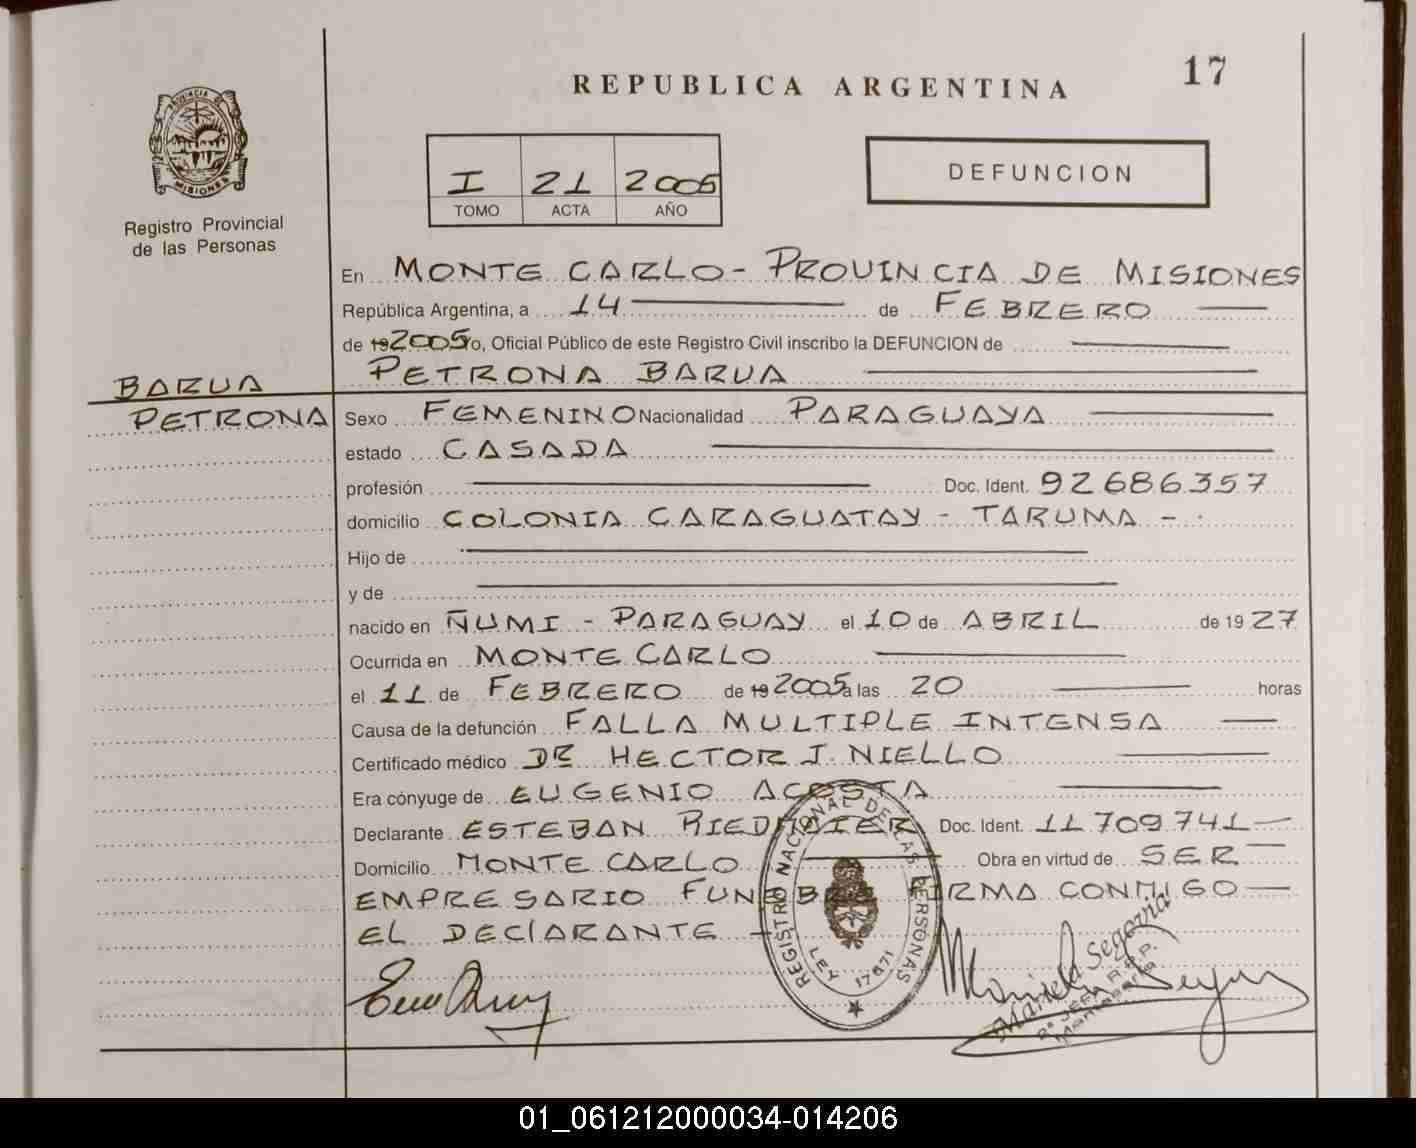 17
REPUBLICA ARGENTINA
PROVINCIA DE
MISIONES
Registro Provincial
de las Personas
I 21 2005
TOMO ACTA AÑO
DEFUNCION
En MONTE CARLO - PROVINCIA DE MISIONES
República Argentina, a 14 de FEBRERO
de 192005 yo, Oficial Público de este Registro Civil inscribo la DEFUNCION de
PETRONA BARUA
BARUA
PETRONA
Sexo FEMENINO Nacionalidad PARAGUAYA
estado CASADA
profesión Doc. Ident. 92686357
domicilio COLONIA CARAGUATAY - TARUMA -
Hijo de
y de
nacido en ÑUMI - PARAGUAY el 10 de ABRIL de 1927
Ocurrida en MONTE CARLO
el 11 de FEBRERO de 19 2005 a las 20 horas
Causa de la defunción FALLA MULTIPLE INTENSA
Certificado médico DR HECTOR J. NIELLO
Era cónyuge de EUGENIO ACOSTA
Declarante ESTEBAN RIEDMAIER Doc. Ident. 11709741
Domicilio MONTE CARLO Obra en virtud de SER
EMPRESARIO FUNEBRE FIRMA CONMIGO
EL DEClARANTE
REGISTRO NACIONAL DE LAS PERSONAS
LEY 17671
Mariela Segovia
01_061212000034-014206